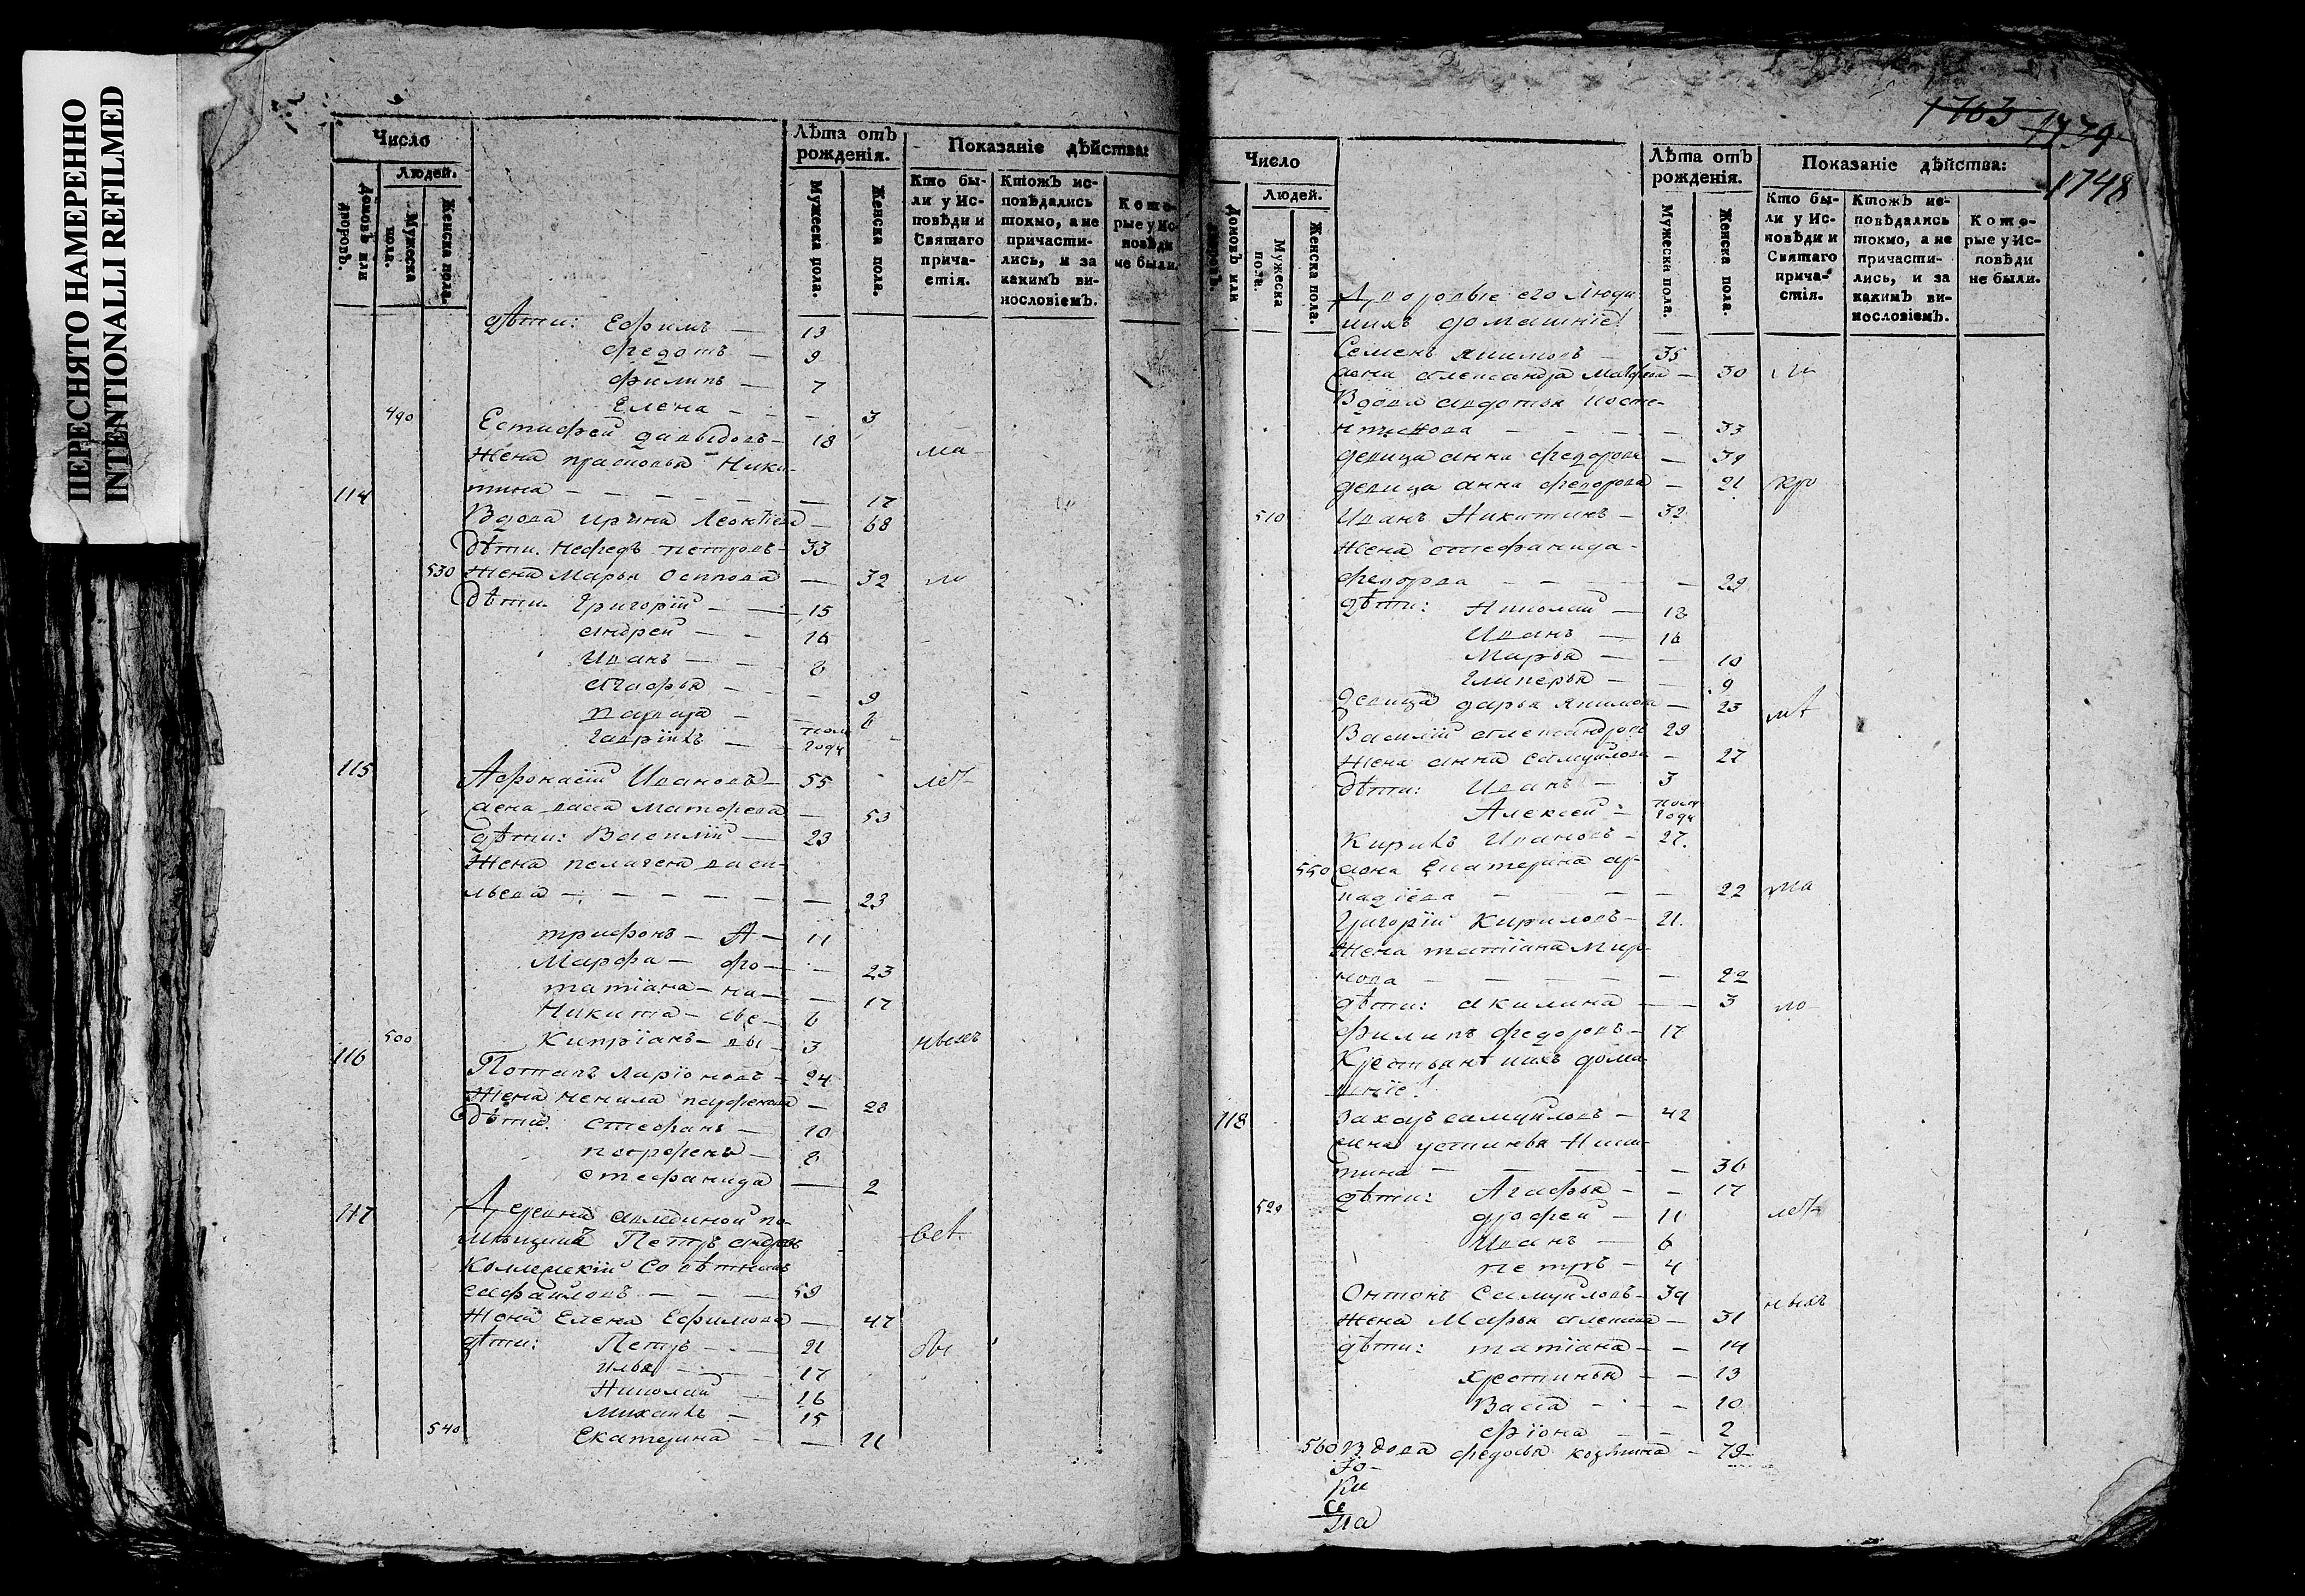 ПЕРЕСНЯТО НАМЕРЕННО
INTENTIONALLI REFILMED
Число
Людей.
Домовъ или дворовъ.
Мужеска пола.
Женска пола.
Лѣта отъ рожденія.
Мужеска пола.
Женска пола.
Показаніе дѣйства:
Кто были у Исповѣди и Святаго причастія.
Ктожъ исповѣдались токмо, а не причастились, и за какимъ винословіемъ.
Которые у Исповѣди не были.
дѣти: Ефимъ — 13
Федотъ — 9
Филипъ — 7
490 Елена — — 3
Естифей давыдовъ — 18
Жена прасковья Ники- ма
114 тина — — — — — 17
Вдова Ирина Леонтіева — 68
Дѣти. Нефедъ петровъ — 33
530 Жена Марья Осипова — 32 ло
Дѣти. Григорій — — 15
андрей — — 16
Иванъ — — 8
агафья — — — 9
— — 6
Гаврiилъ — — полгоду
115 Афонасій Ивановъ — 55 лѣт
жена васса Матфеева — 53
дѣти: Василій — 23
Жена пелагея васи-
льева — — — — — — 23
трифонъ — А — 11
Марфа — фо — — 23
татіана — на — — 17
Никита — сье — 6
500 Кипріанъ — вы — 3 ныхъ
116 Потапъ Ларіоновъ — 24
Жена ненила парфенова — 28
дѣти. Стефанъ — 10
парфенъ — 8
стефанида — 2
117 Деревня по-
мѣщикъ Петръ андреевъ вет
Коллежскій Совѣтникъ
сафайловъ — — — 59
Жена Елена Ефимова — 47
дѣти: Петръ — — 21 вы
илья — — 17
Николай — 16
Михаилъ — 15
540 Екатерина — — 11
1703 1779
1748
Число
Людей.
Домовъ или дворовъ.
Мужеска пола.
Женска пола.
Лѣта отъ рожденія.
Мужеска пола.
Женска пола.
Показаніе дѣйства:
Кто были у Исповѣди и Святаго причастія.
Ктожъ исповѣдались токмо, а не причастились, и за какимъ винословіемъ.
Которые у Исповѣди не были.
Дворовые его Люди
ихъ домашніе!
Семенъ якимовъ — 35
жена александра Матфеева — 30
Вдова авдотья Косте-
нтинова — — — — — 33
девица анна федорова — 39
девица анна федорова — 21
510 Иванъ Никитинъ — 32
Жена стефанида
федорова — — — 29
дѣти: Николай — 18
Иванъ — 16
Марья — — 10
Гликерья — — 9
девица дарья якимова — 23
Василій александровъ 29
Жена анна самуйлова — 27
дѣти: Иванъ — 3
Алексей — полгоду
Кирилъ Ивановъ — 27.
550 жена Екатерина ар-
кадіева — — — — 22 ма
Григорій Кириловъ — 21.
Жена татіана Мир-
нова — — — — 22
дѣти: акилина — — 3 ло
Филипъ федоровъ — 17
Крестьянѣ ихъ дома-
шніе!
118 Захаръ самуйловъ — 42
жена устинья Ники-
тина — — — — — 36
дѣти: Агафья — — 17
520 дрофей — 11 лѣт
Иванъ — 6
петръ — 4
Онтонъ Самуйловъ — 39 ныхъ
Жена Марья алексеева — 31
дѣти: татіана — — 14
хрестинья — — 13
Васса — — — 10
— — 2
560 Вдова федосья козмина — 79